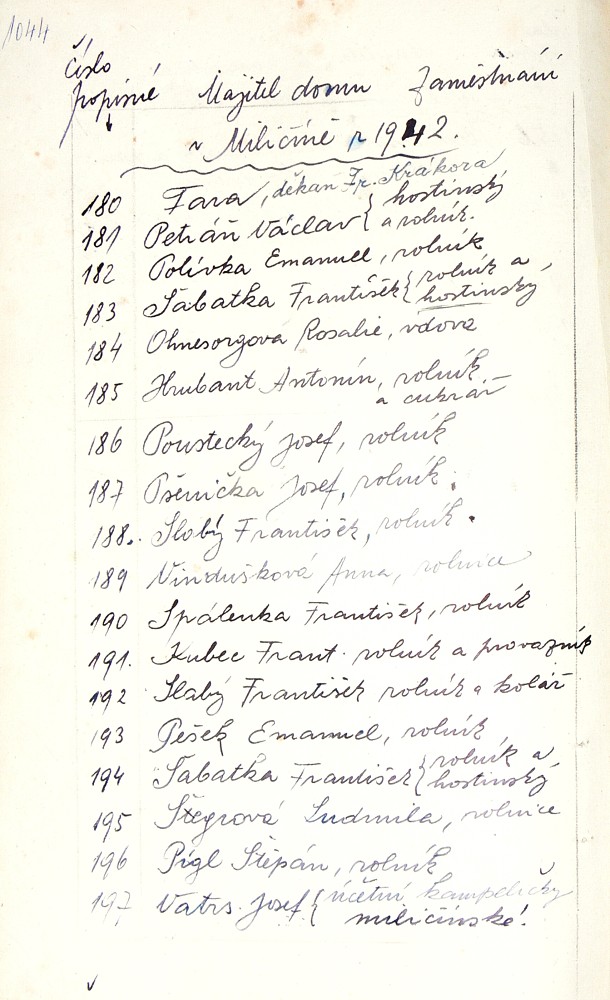 1044
Číslo
popisné Majitel domu Zaměstnání
v Miličíně r 1942.
180 Fara, děkan Fr. Krákora
181 Petráň Václav { hostinský
a rolník.
182 Polívka Emanuel, rolník
183 Šabatka František { rolník a
hostinský
184 Ohnesorgová Rosalie, vdova
185 Hrubant Antonín, rolník
a cukrář
186 Poustecký Josef, rolník
187 Pšenička Josef, rolník.
188. Slabý František, rolník.
189 Vindušková Anna, rolnice
190 Spálenka František, rolník
191. Kubec Frant. rolník a provazník
192 Slabý František rolník a kolář
193 Pešek Emanuel, rolník
194 Šabatka František { rolník a
hostinský
195 Štegrová Ludmila, rolnice
196 Pígl Štěpán, rolník
197 Vatrs. Josef { účetní kampeličky
miličínské.